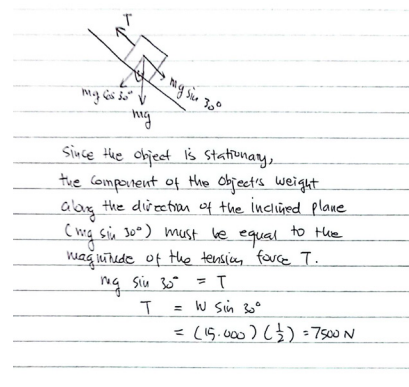 T
mg sin 30°
mg cos 30°
mg
Since the object is stationary,
the component of the object's weight
along the direction of the inclined plane
(mg sin 30°) must be equal to the
magnitude of the tension force T.
mg sin 30° = T
T = W sin 30°
= (15.000) (1/2) = 7500 N